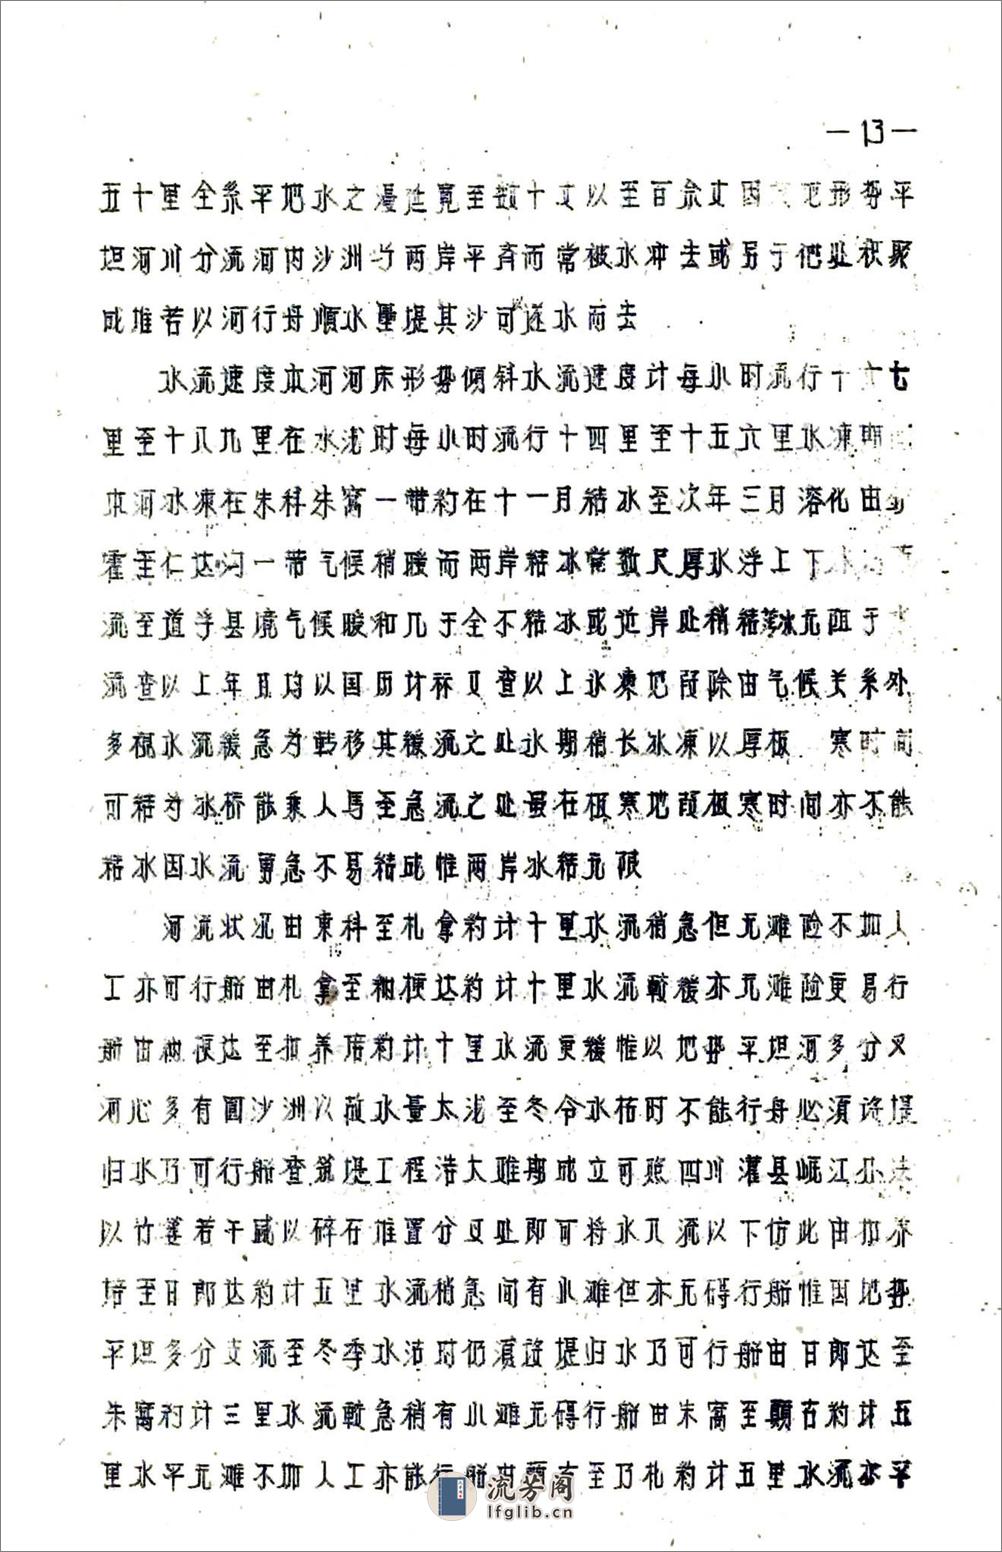 —13—
五十里全系平地水之漫延宽至数十丈以至百余丈因地形势平
坦河川分流河内沙洲与两岸平齐而常被水冲去或另于他处积聚
成堆若以河行舟顺水垒堤其沙可逐水而去
水流速度本河河床形势倾斜水流速度计每小时流行十六七
里至十八九里在水浅时每小时流行十四里至十五六里水冻即
本河水冻在朱科朱窝一带约在十一月结冰至次年三月溶化由
霍至仁达沟一带气候稍暖而两岸结冰常数尺厚水浮上下
流至道孚县境气候暖和几于全不结冰或近岸处稍结薄冰无阻于水
流查以上年月均以国历计标又查以上冰冻地段除由气候关系外
多视水流缓急为转移其缓流之处冰期稍长冰冻以厚极 寒时间
可结为冰桥能乘人马至急流之处虽在极寒地段极寒时间亦不能
结冰因水流勇急不易结成惟两岸冰结无限
河流状况由东科至札拿约计十里水流稍急但无滩险不加人
工亦可行船由札拿至梗达约计十里水流较缓亦无滩险更易行
船由梗达至养培约计十里水流更缓惟以地势平坦河多分叉
河心多有圆沙洲以致水量太浅至冬令水枯时不能行舟必须筑堤
归水乃可行船查筑堤工程浩大难期成立可照四川灌县岷江办法
以竹篓若干盛以碎石堆置分叉处即可将水入流以下仿此由养
培至日郎达约计五里水流稍急间有小滩但亦无碍行船惟因地势
平坦多分支流至冬季水沽时仍须筑堤归水乃可行船由日郎达至
朱窝约计三里水流较急稍有小滩无碍行船由朱窝至颗古约计五
里水平无滩不加人工亦能行船由颗古至乃札约计五里水流亦平
流芳阁
lfglib.cn